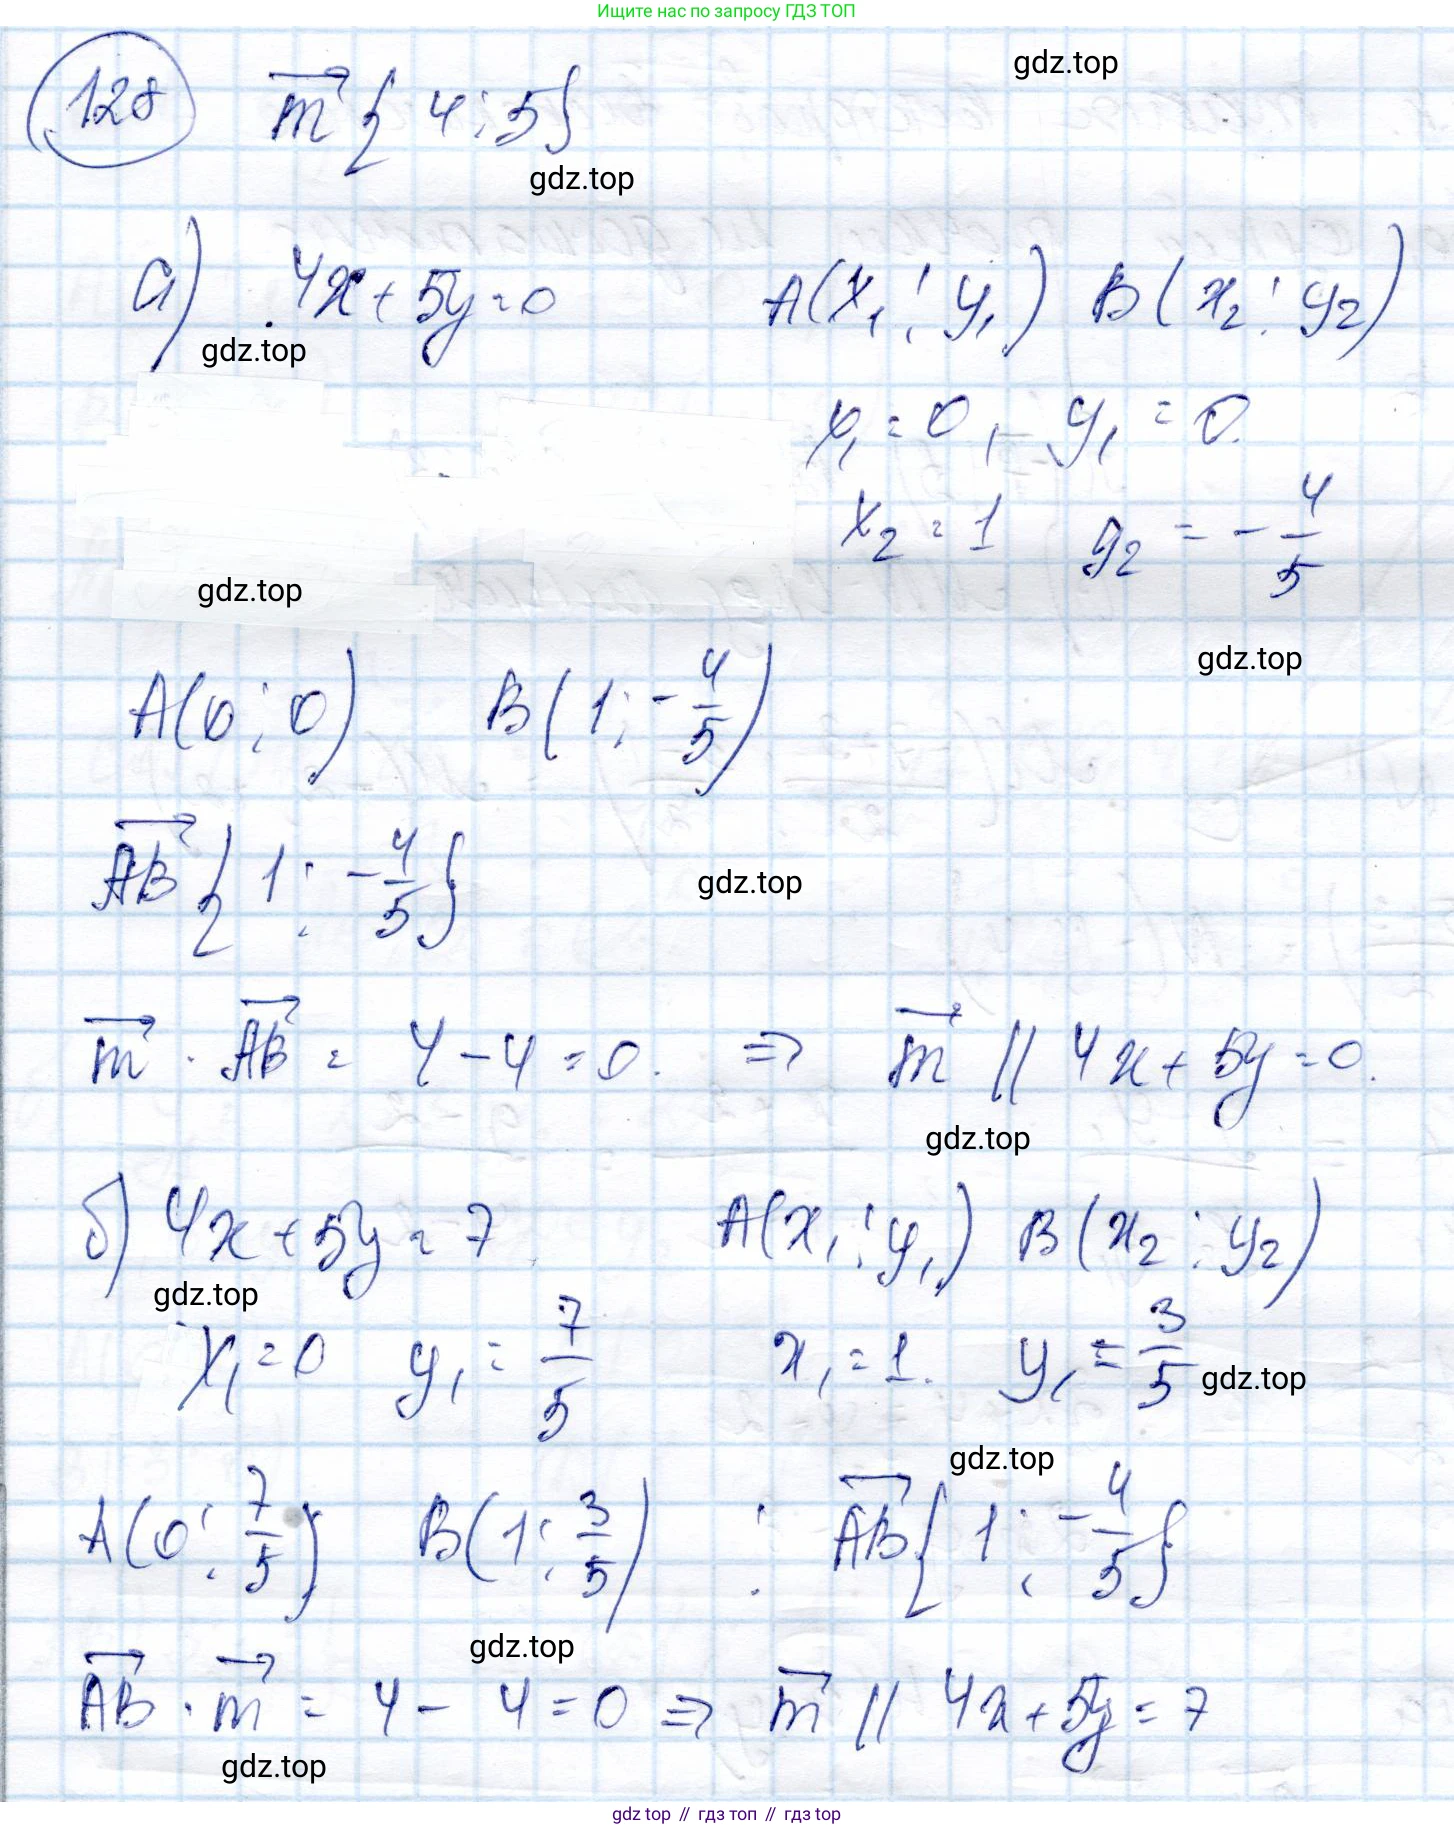 Ищите нас по запросу ГДЗ ТОП
128 m⃗ {4; 5}
gdz.top
gdz.top
а) 4x + 5y = 0 A(x₁; y₁) B(x₂; y₂)
gdz.top
x₁ = 0, y₁ = 0.
x₂ = 1 y₂ = -4/5
gdz.top
gdz.top
A(0; 0) B(1; -4/5)
AB⃗ {1; -4/5}
gdz.top
m⃗ · AB⃗ = 4 - 4 = 0. ⇒ m⃗ || 4x + 5y = 0.
gdz.top
б) 4x + 5y = 7 A(x₁; y₁) B(x₂; y₂)
gdz.top
x₁ = 0 y₁ = 7/5 x₁ = 1. y₁ = 3/5
gdz.top
gdz.top
A(0; 7/5) B(1; 3/5) ; AB⃗ {1; -4/5}
gdz.top
AB⃗ · m⃗ = 4 - 4 = 0 ⇒ m⃗ || 4x + 5y = 7
gdz.top
gdz top // гдз топ // гдз top